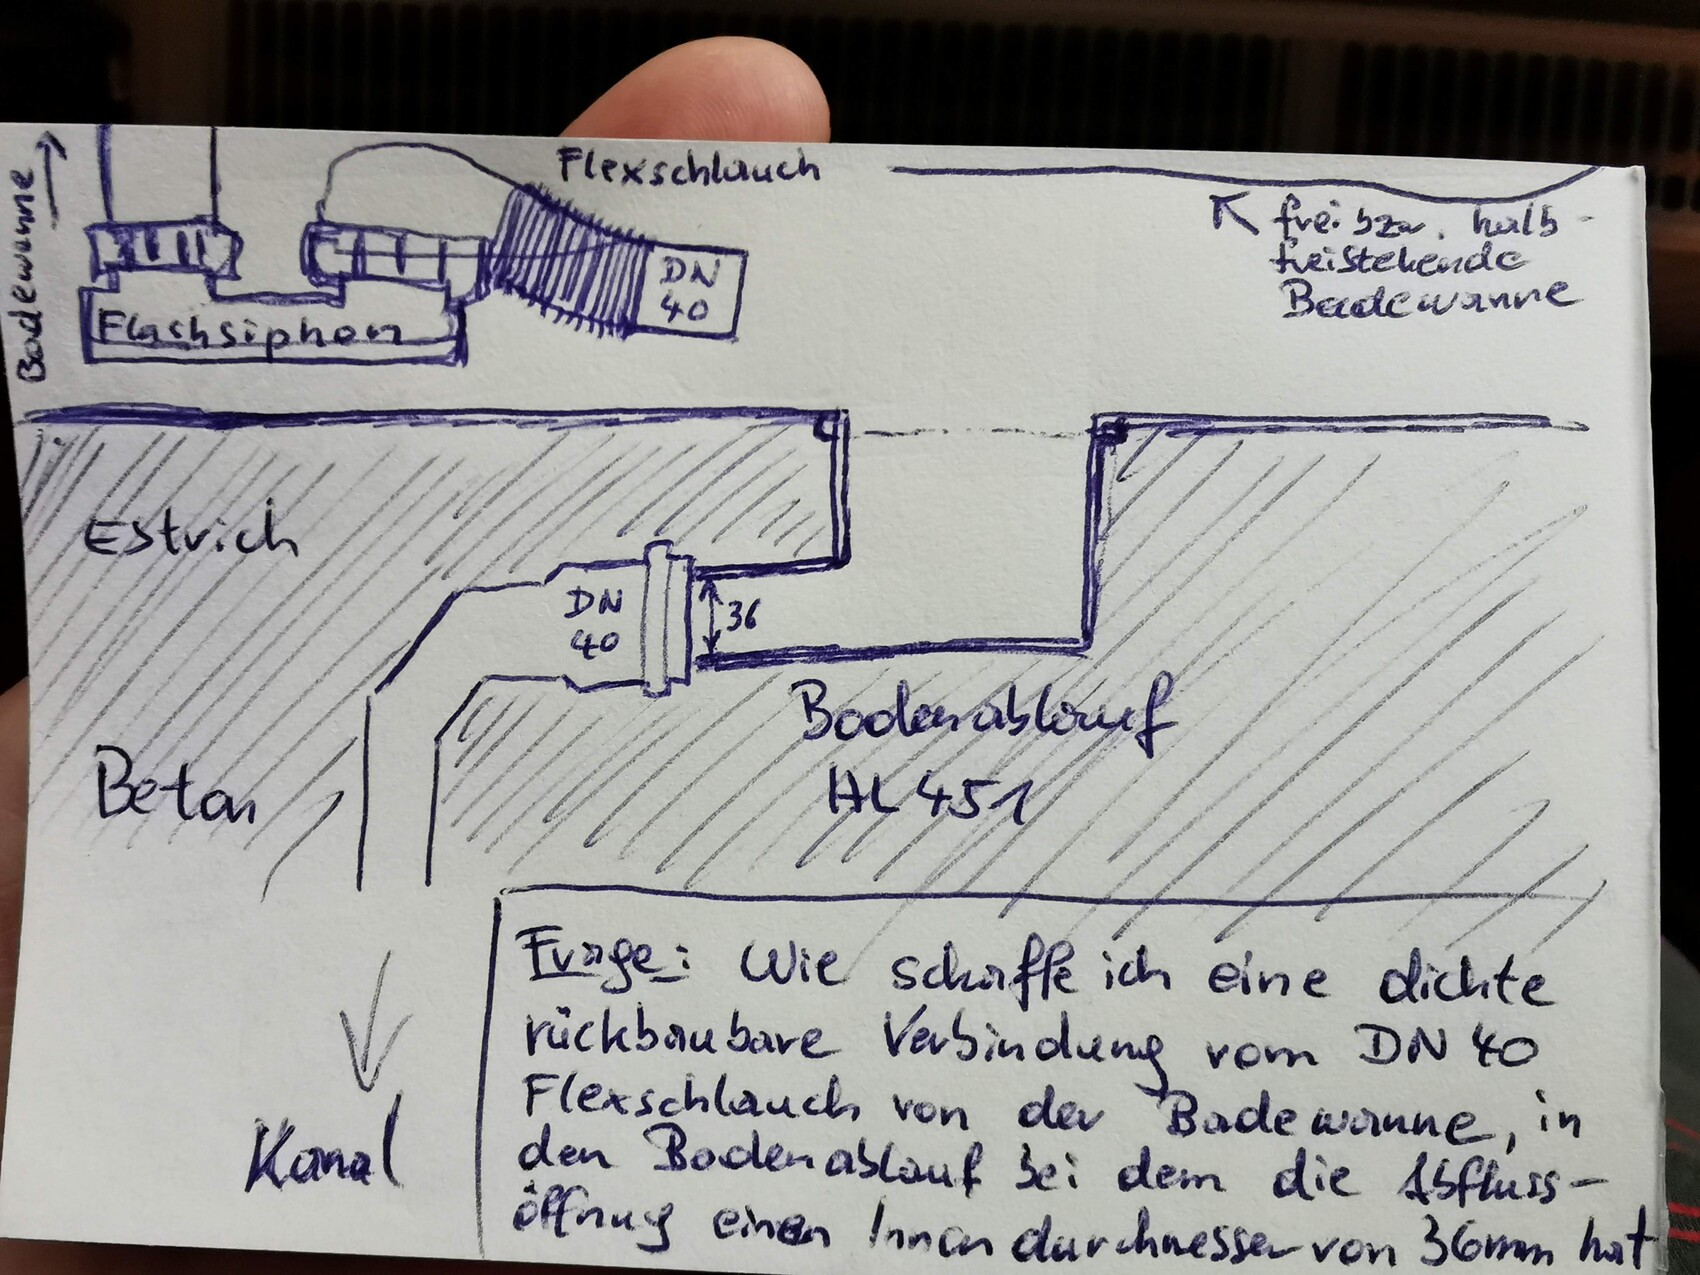 Badewanne
Flexschlauch
DN
40
Flachsiphon
frei bzw. halb-
freistehende
Badewanne
Estrich
DN
40
36
Bodenablauf
HL 451
Beton
Kanal
Frage: Wie schaffe ich eine dichte
rückbaubare Verbindung vom DN 40
Flexschlauch von der Badewanne, in
den Bodenablauf bei dem die Abfluss-
öffnung einen Innendurchmesser von 36mm hat